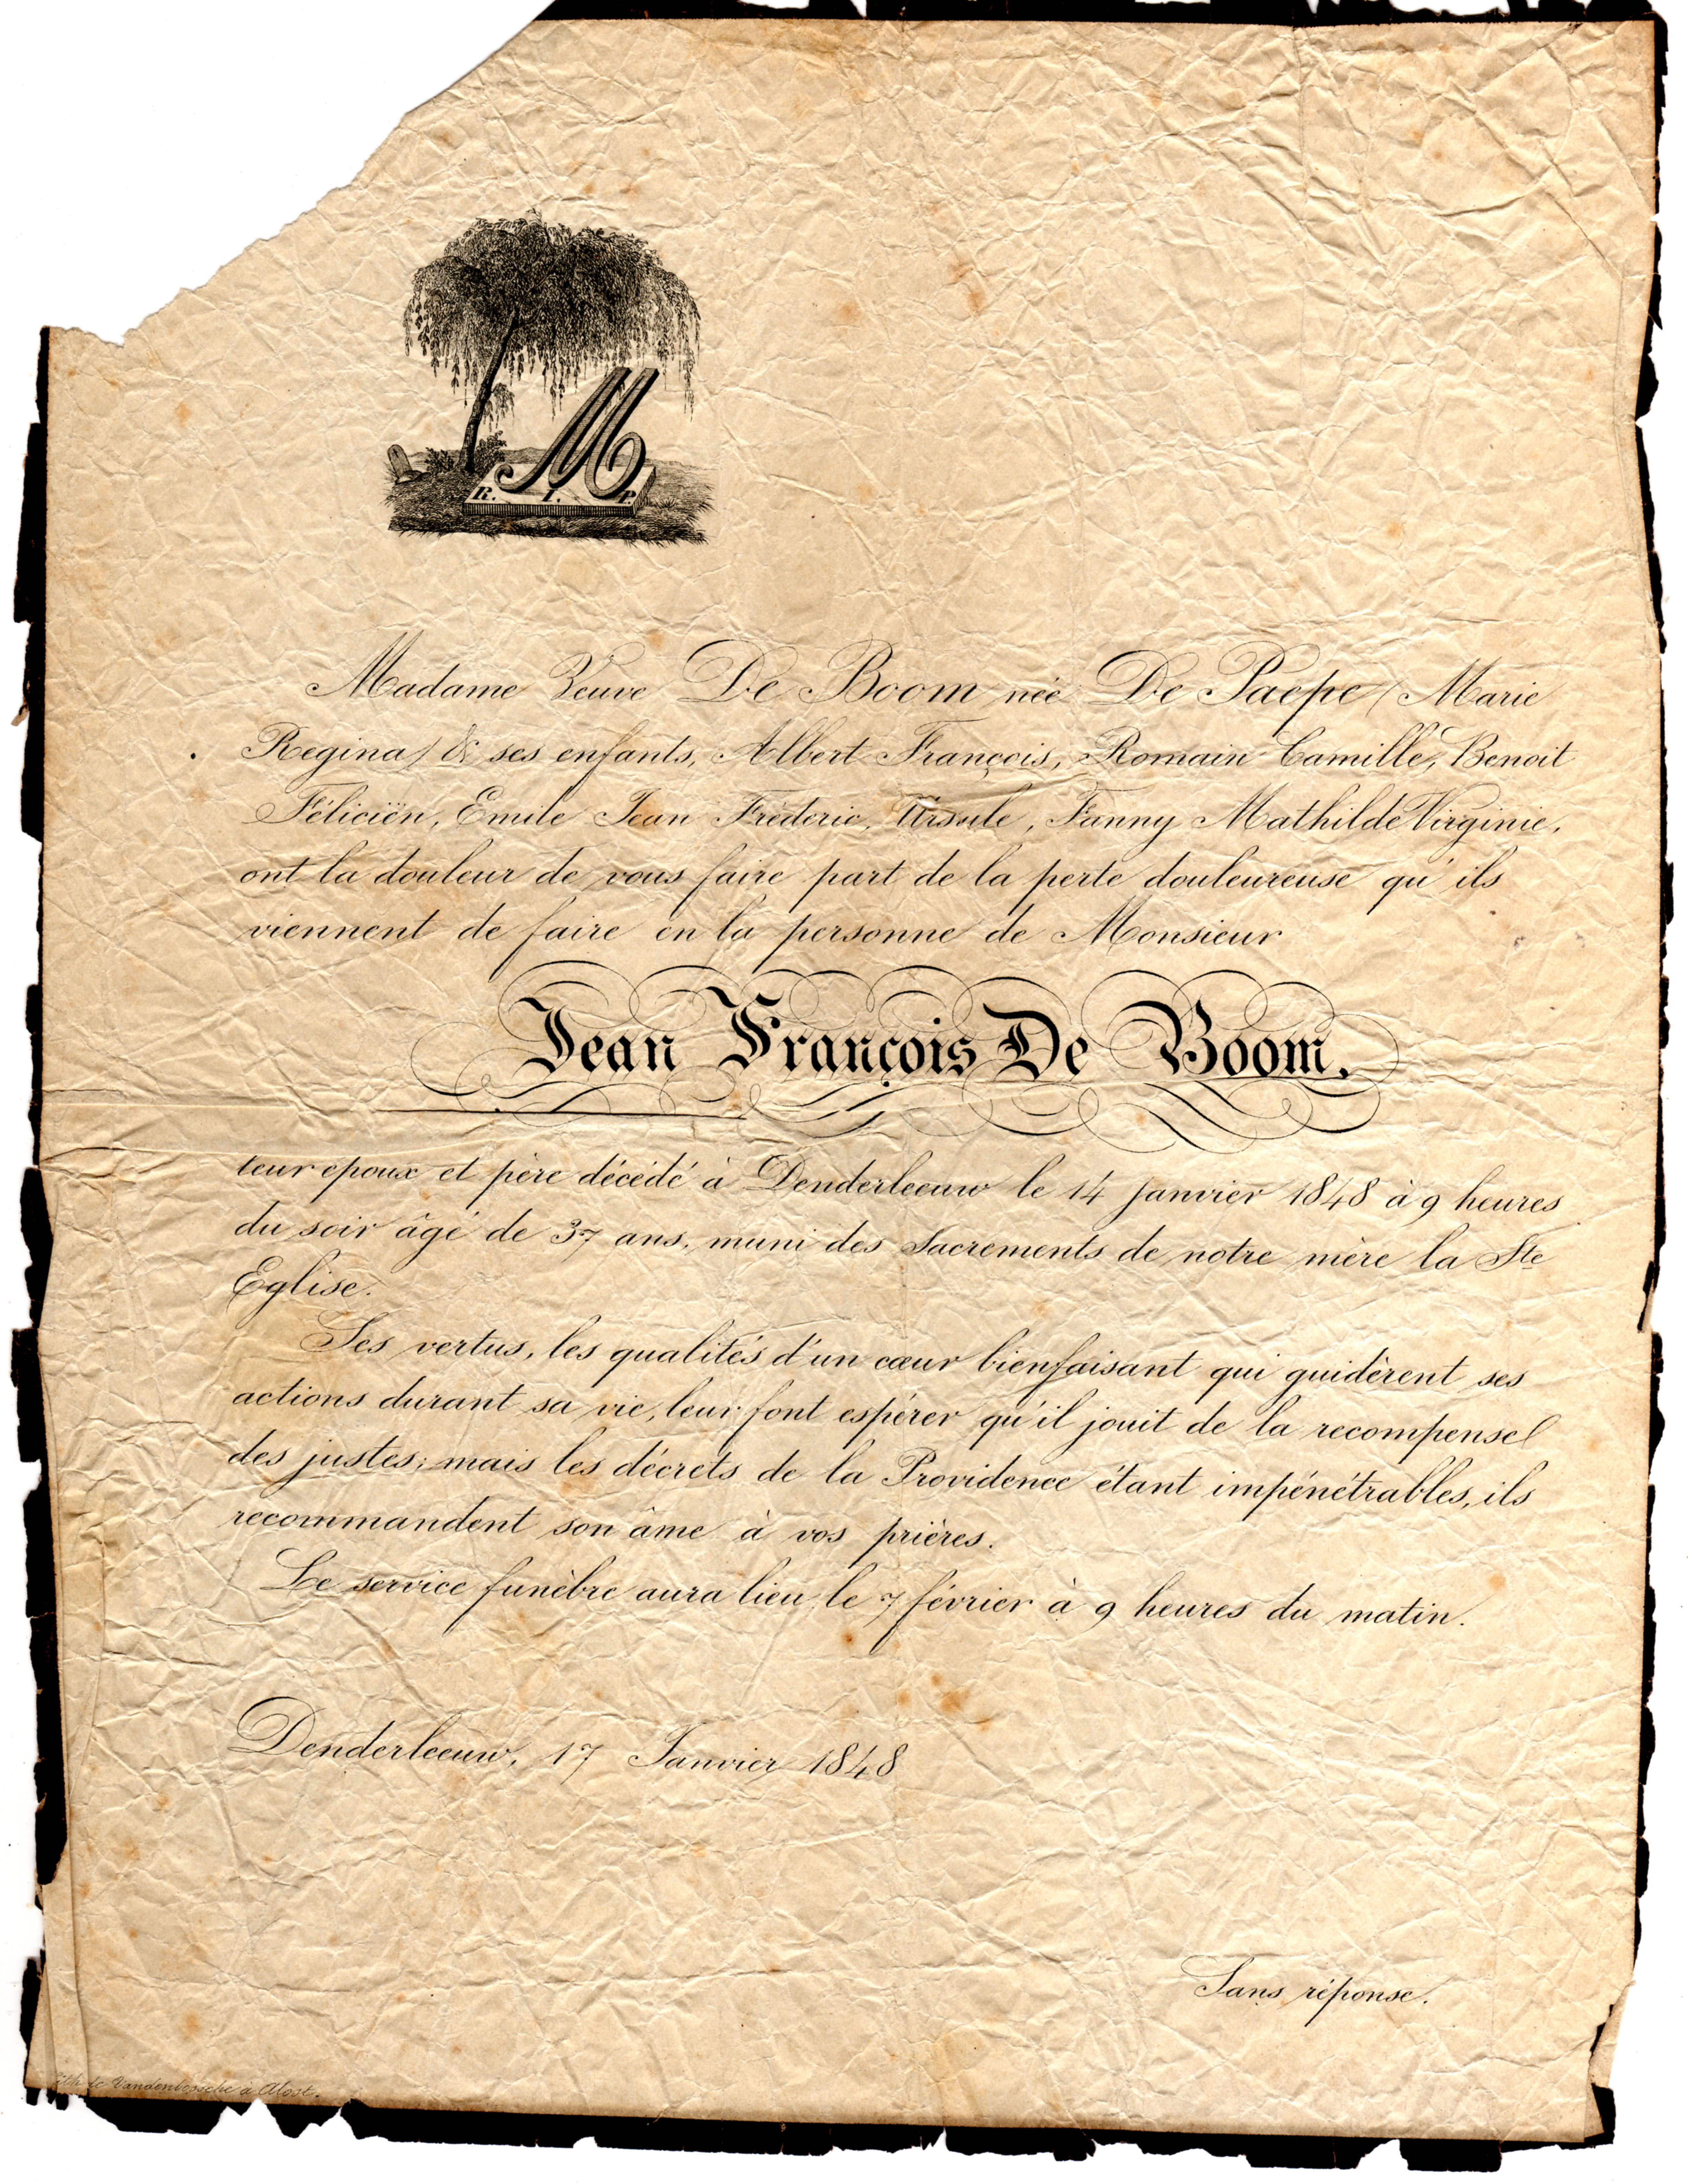 M
R. I. P.
Madame Veuve De Boom née De Paepe (Marie
Regina) & ses enfants, Albert François, Romain Camille, Benoit
Féliciën, Emile Jean Frederic, Ursule, Fanny Mathilde Virginie,
ont la douleur de vous faire part de la perte douleureuse qu'ils
viennent de faire en la personne de Monsieur
Jean François De Boom.
leur epoux et père décédé à Denderleeuw le 14 janvier 1848 à 9 heures
du soir âgé de 37 ans, muni des Sacrements de notre mère la Ste
Eglise.
Ses vertus, les qualités d'un cœur bienfaisant qui guidèrent ses
actions durant sa vie, leur font espérer qu'il jouit de la recompense
des justes; mais les décrets de la Providence étant impénétrables, ils
recommandent son âme à vos prières.
Le service funèbre aura lieu le 7 février à 9 heures du matin.
Denderleeuw, 17 Janvier 1848
Sans réponse.
Lith de Vandenbossche à Alost.